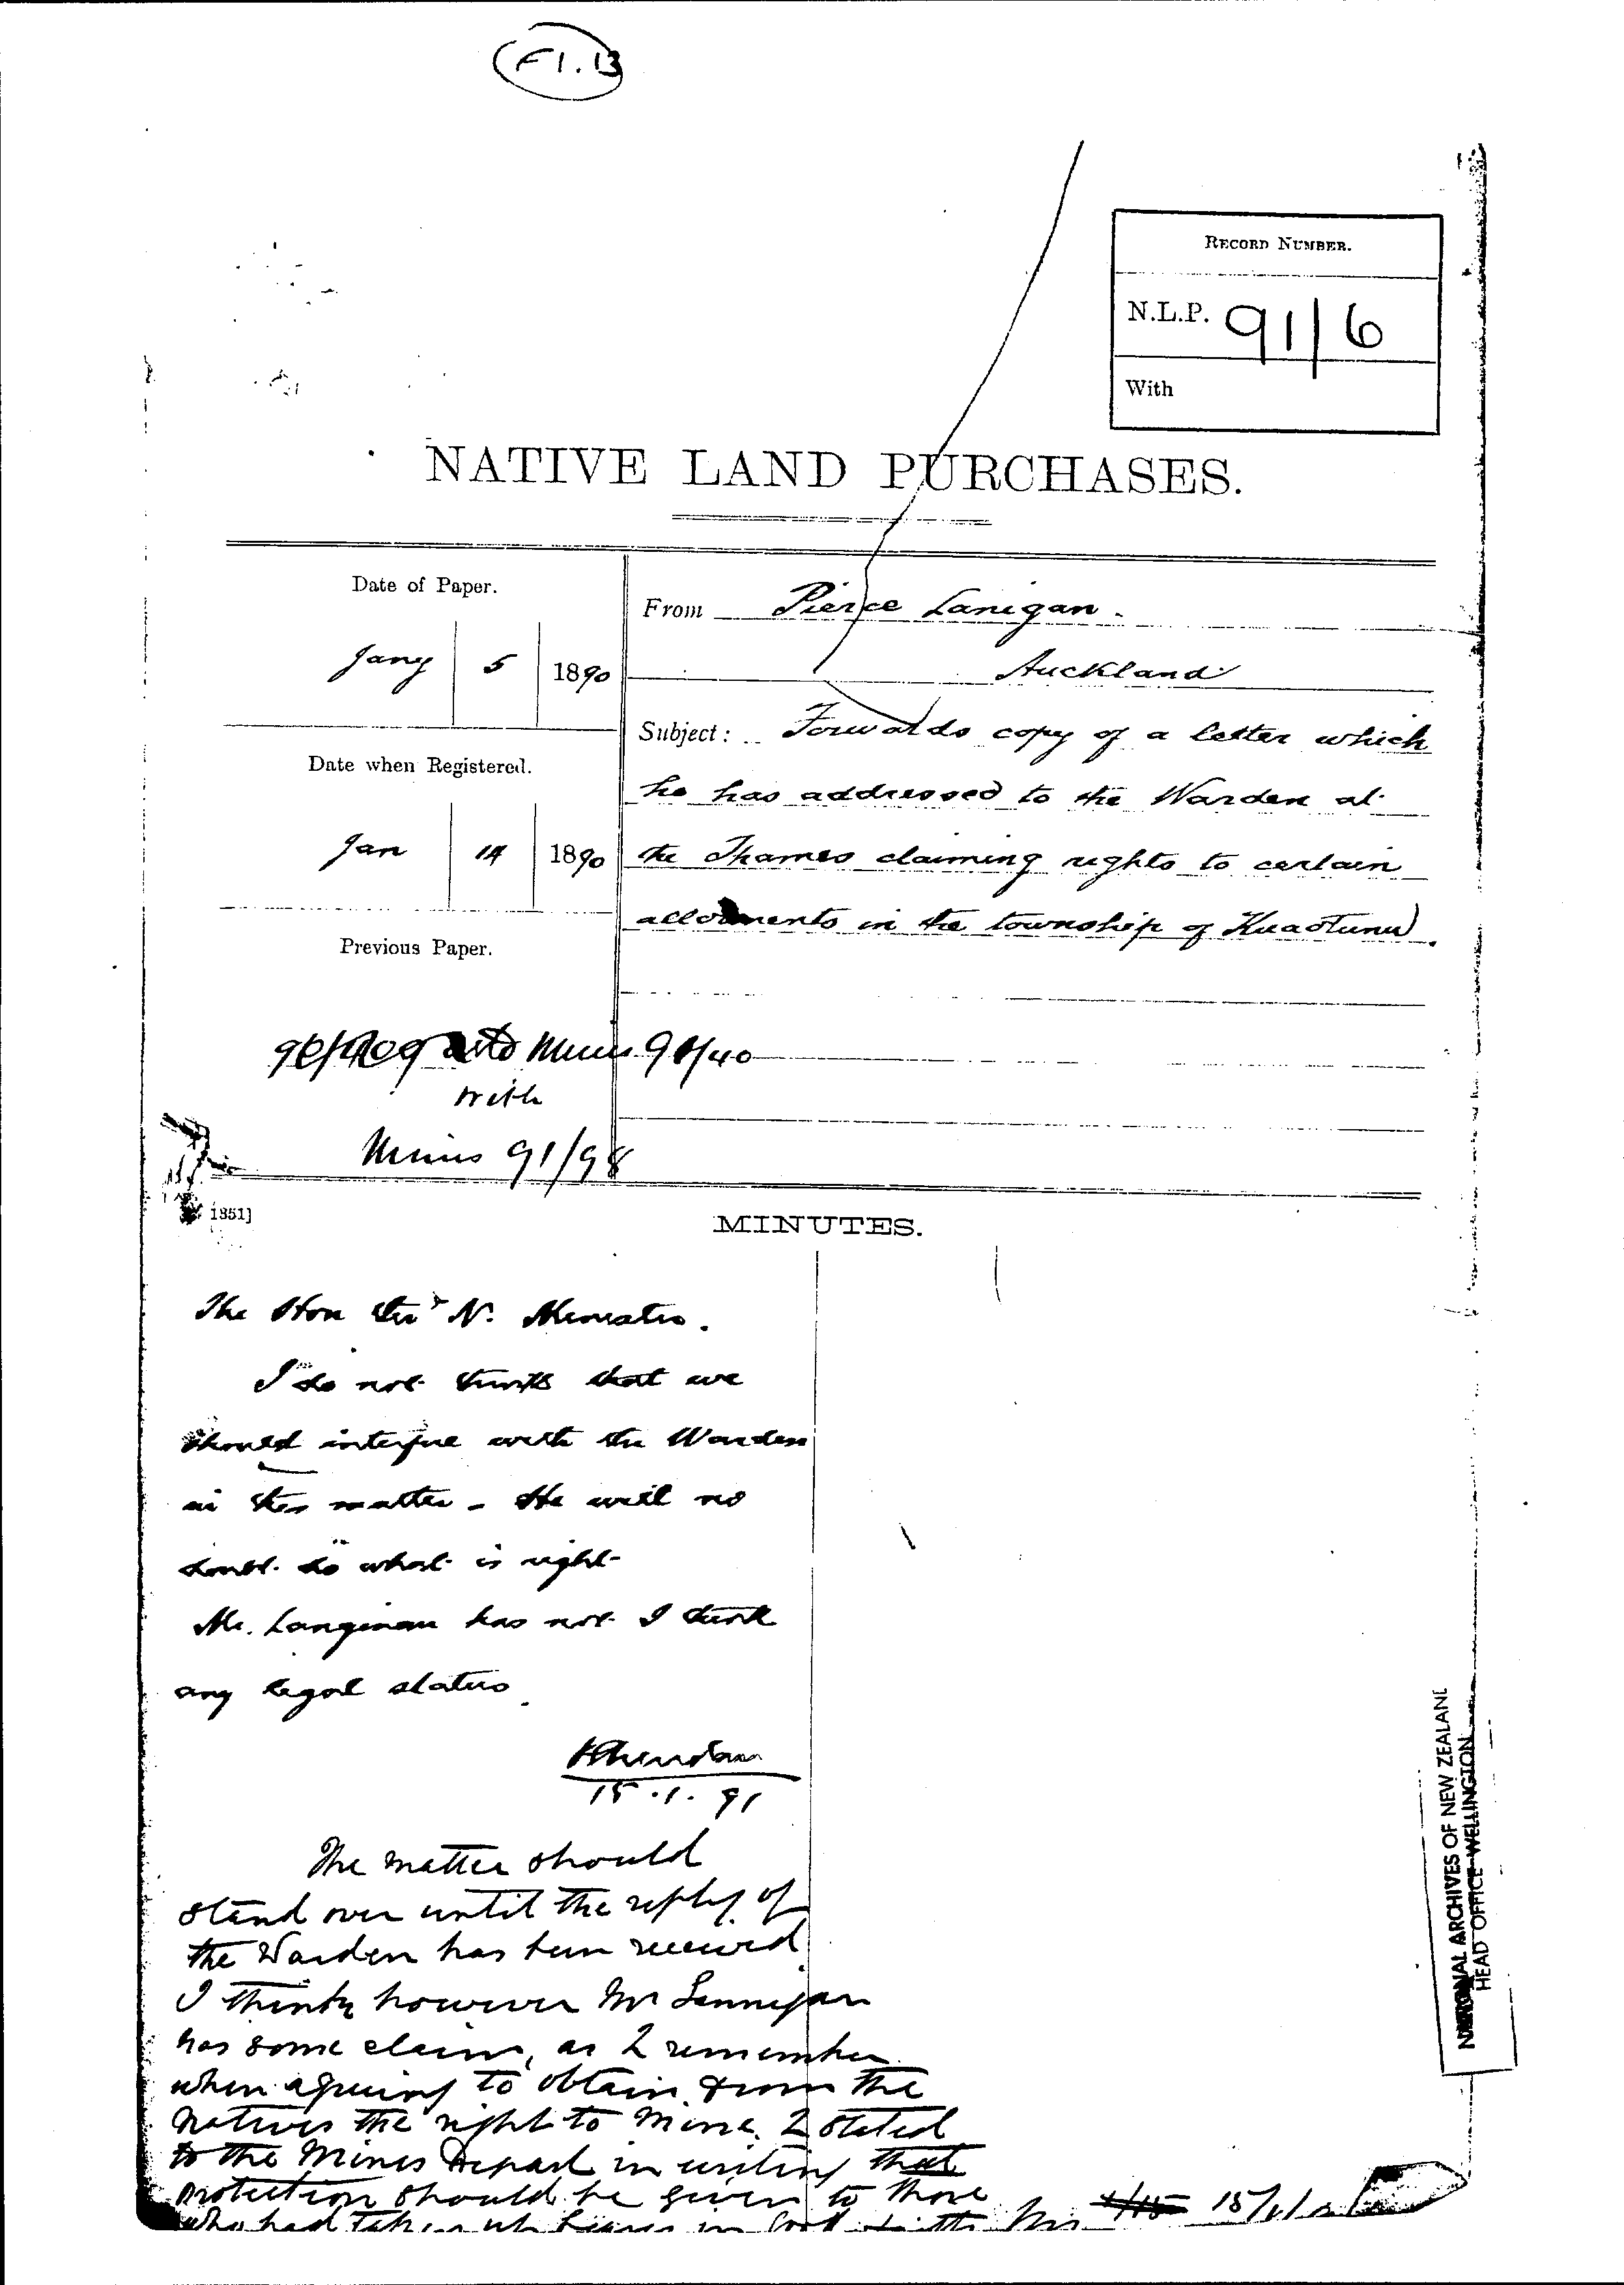 F1.13
RECORD NUMBER.
N.L.P. 91/6
With
NATIVE LAND PURCHASES.
Date of Paper.
Jany 5 1890
Date when Registered.
Jan 14 1890
Previous Paper.
90/40
with
Mines 91/98
From Pierce Lanigan.
Auckland
Subject: Forwards copy of a letter which
he has addressed to the Warden at
the Thames claiming rights to certain
allotments in the township of Kuaotunu.
1351]
MINUTES.
The Hon the N. Minister.
I do not think that we
should interfere with the Warden
in this matter - He will no
doubt do what is right
Mr. Langman has not I think
any legal status
15.1.91
The matter should
stand over until the reply of
the Warden has been received
I think however Mr Lannigan
has some claim, as I remember
when agreeing to obtain from the
natives the right to mine. I stated
to the Mines Depart in writing that
protection should be given to those
who had taken up in good
15/1/
NATIONAL ARCHIVES OF NEW ZEALAND
HEAD OFFICE WELLINGTON